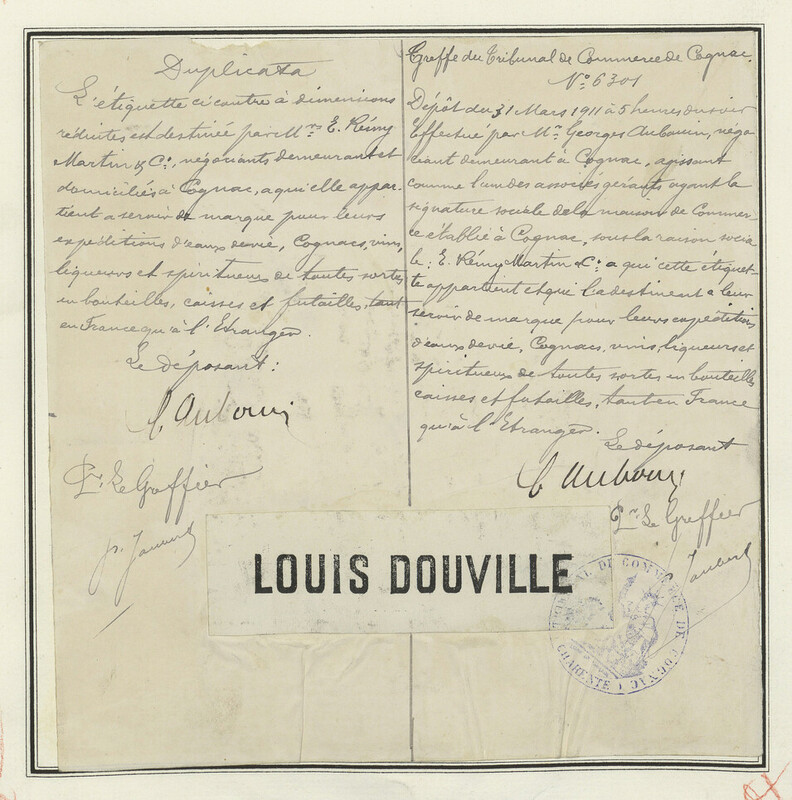 Duplicata
L'étiquette ci contre à dimensions
réduites est destinée par Mrs E. Rémy
Martin & Co, négociants demeurant et
domiciliés à Cognac, a qui elle appar-
tient a servir de marque pour leurs
expéditions d'eaux devie, Cognacs, vins,
liqueurs et spiritueux de toutes sortes
en bouteilles, caisses et futailles, tant
en France qu'à l'Etranger.
Le déposant:
Pr. Le Greffier
p. Jaubert
Greffe du Tribunal de Commerce de Cognac.
No 6301
Dépôt du 31 Mars 1911 à 5 heures du soir
Effectué par Mr. Georges Auboin, négo
ciant demeurant à Cognac, agissant
comme l'un des associés gérants ayant la
signature sociale de la maison de Commer-
ce établie à Cognac, sous la raison socia
le: E. Rémy Martin & Co. a qui cette etiquet-
te appartient et qui la destinent a leur
servir de marque pour leurs expéditions
d'eaux devie, Cognacs, vins, liqueurs et
spiritueux de toutes sortes en bouteilles
caisses et futailles, tant en France
qu'à l'Etranger.
Le déposant
Pr. Le Greffier
Jaubert
LOUIS DOUVILLE
TRIBUNAL DE COMMERCE DE COGNAC
CHARENTE